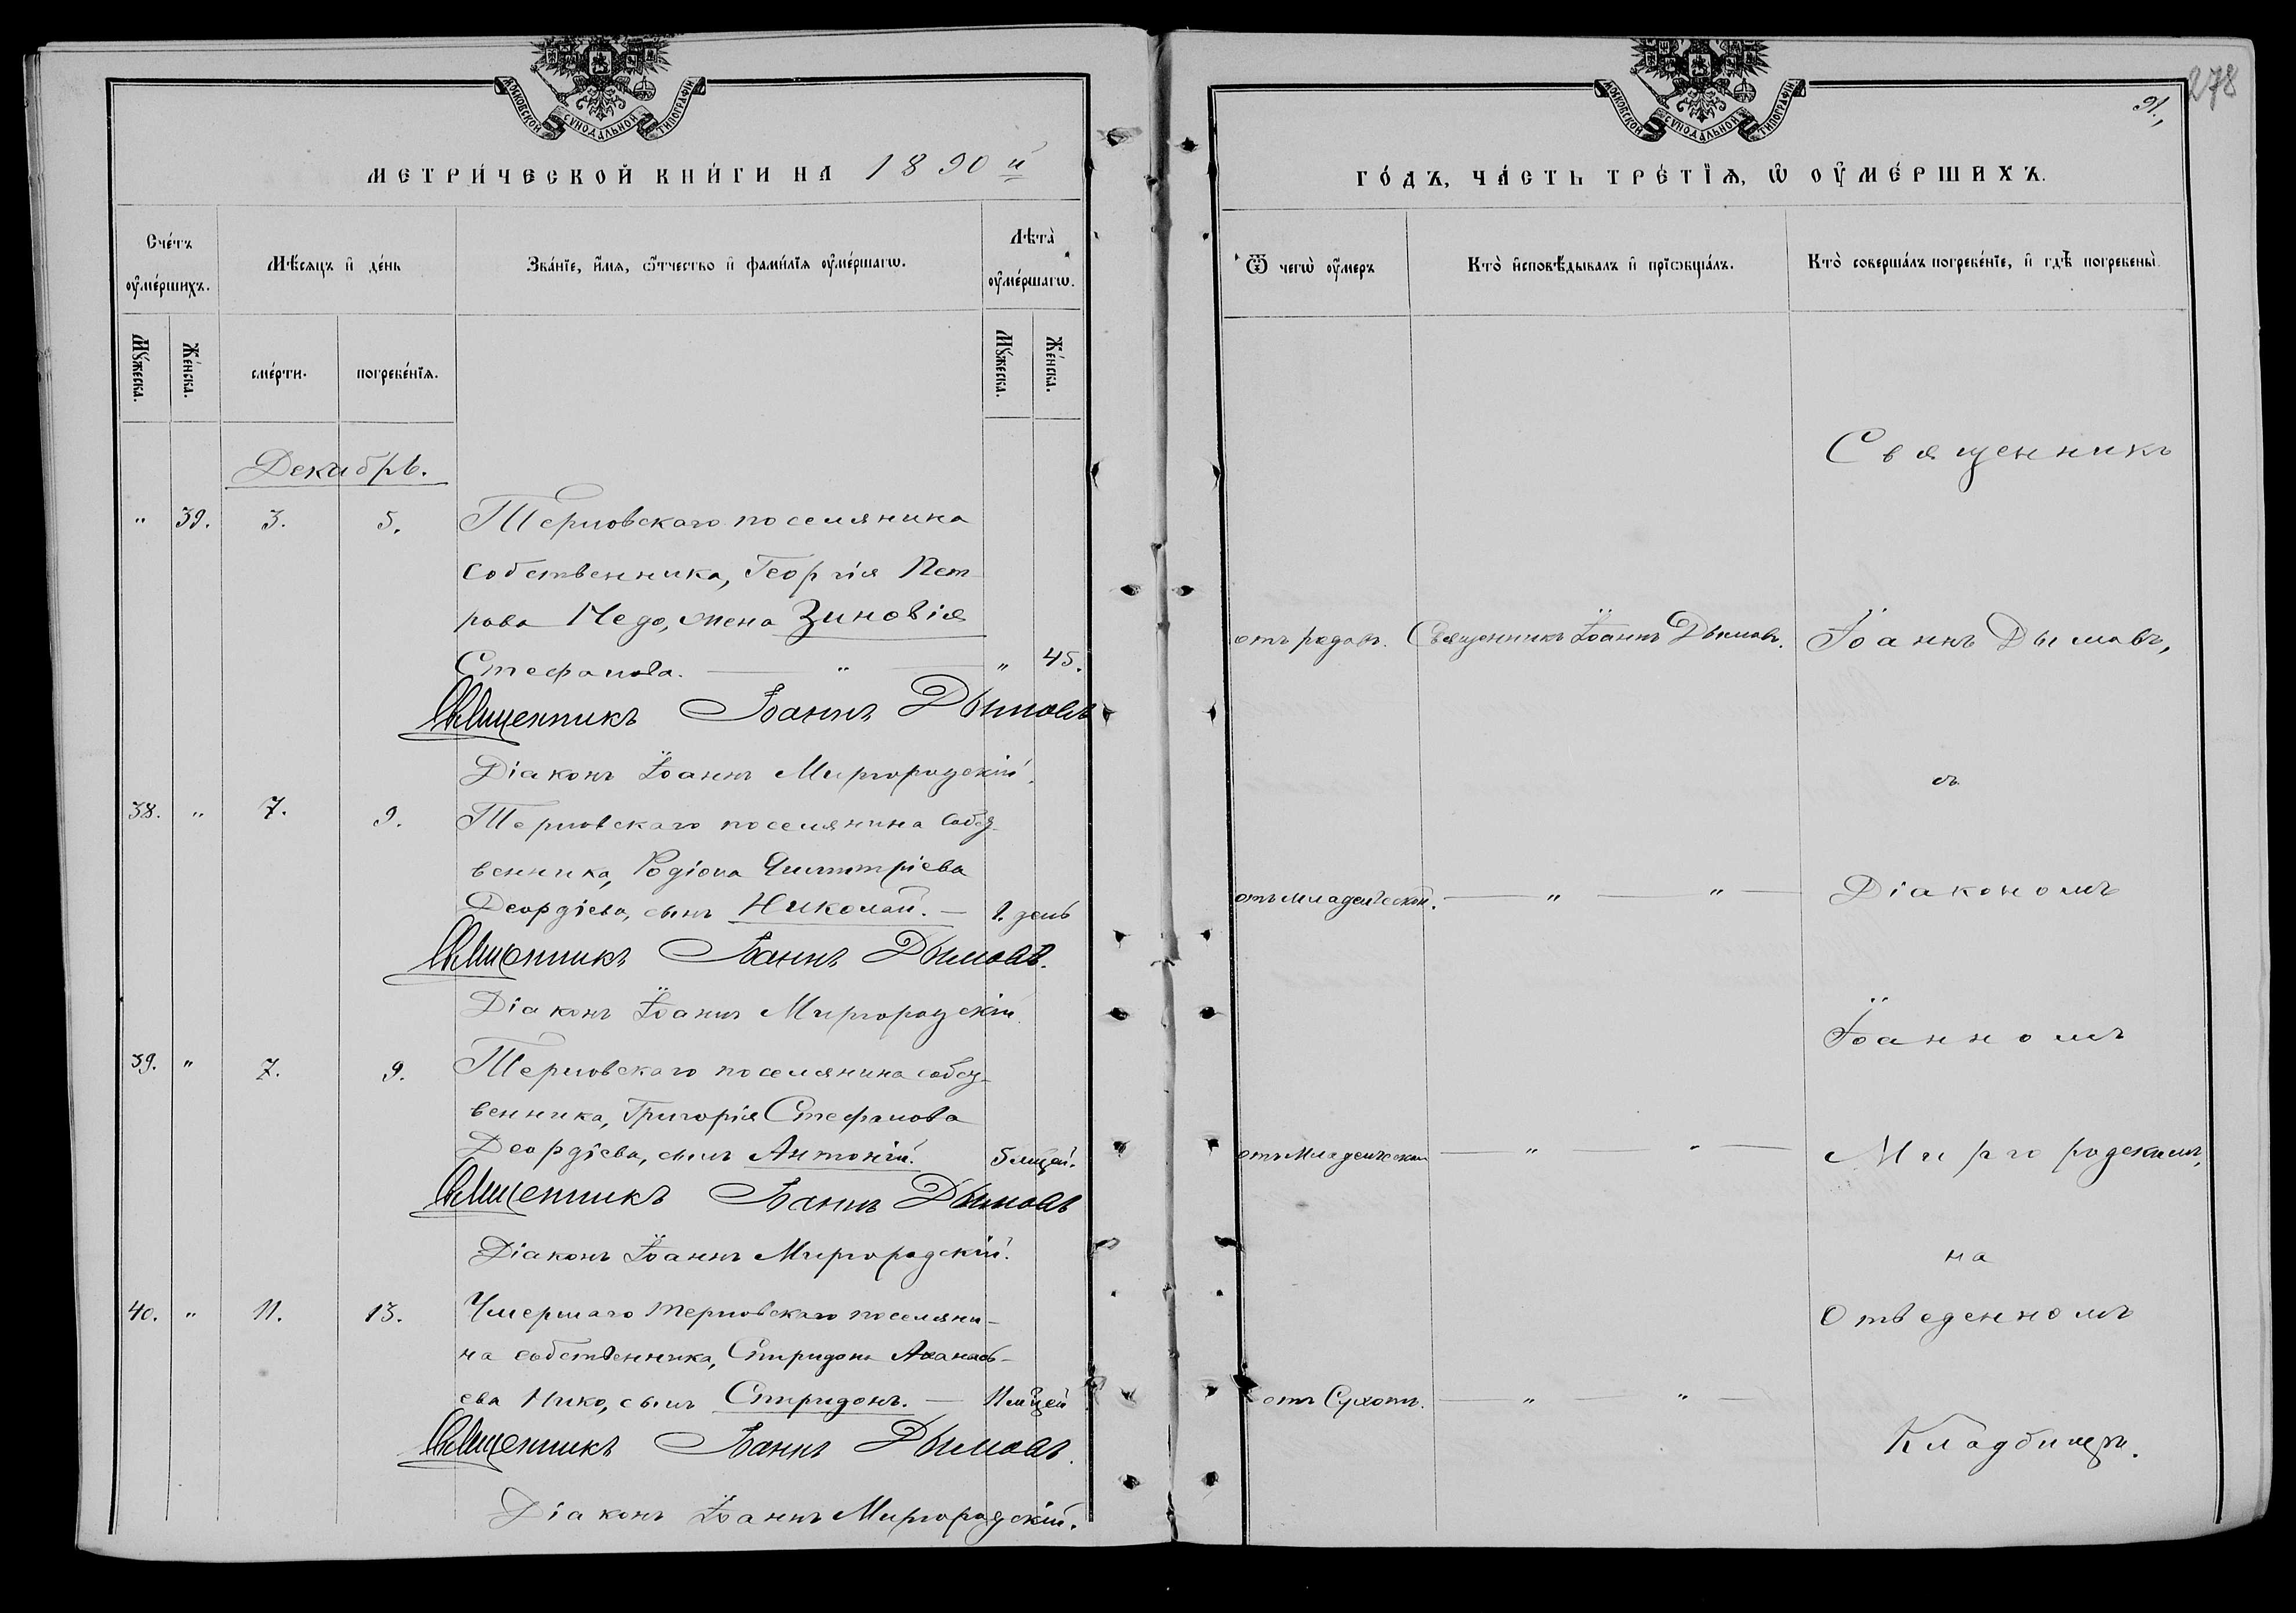 МОСКОВСКОЙ СѴНОДАЛЬНОЙ ТИПОГРАФІИ
МЕТРИ́ЧЕСКОЙ КНИ́ГИ НА 1890 й
Сче́тъ оумершихъ.
Мѣ́сяцъ и де́нь
Зва́нїе, и́мя, ѻ́тчество и фами́лїя оуме́ршагѡ.
Лѣта̀ оуме́ршагѡ.
Мꙋ́жеска.
Же́нска.
сме́рти.
погребе́нїѧ.
Мꙋ́жеска.
Же́нска.
Декабрь.
" 39. 3. 5. Терновскаго поселянина
собственника, Георгія Пет-
рова Недо, жена Зиновія
Стефанова. — " — " 45.
Священникъ Іоаннъ Дымовъ
Діаконъ Іоаннъ Миргородскій.
38. " 7. 9. Терновскаго поселянина собст-
венника, Родіона Димитріева
Деордіева, сынъ Николай. — 1. день
Священникъ Іоаннъ Дымовъ.
Діаконъ Іоаннъ Миргородскій.
39. " 7. 9. Терновскаго поселянина собст-
венника, Григорія Стефанова
Деордіева, сынъ Антоній. 5 мцей.
Священникъ Іоаннъ Дымовъ
Діаконъ Іоаннъ Миргородскій.
40. " 11. 13. Умершаго терновскаго поселяни-
на собственника, Спиридона Аѳанась-
ева Нико, сынъ Спиридонъ. — 11 мцей
Священникъ Іоаннъ Дымовъ.
Діаконъ Іоаннъ Миргородскій.
278
91.,
МОСКОВСКОЙ СѴНОДАЛЬНОЙ ТИПОГРАФІИ
ГО́ДЪ, ЧА́СТЬ ТРЕ́ТЇѦ, Ѡ ОУМЕ́РШИХЪ.
Ѿ чегѡ̀ оу́меръ
Кто̀ и̓сповѣ́дывалъ и прїѡбща́лъ.
Кто̀ соверша́лъ погребе́нїе, и гдѣ̀ погребены̀.
Священникъ
отъ родовъ. Священникъ Іоаннъ Дымовъ. Іоаннъ Дымовъ,
съ
отъ младенческой. — " — " — Діакономъ
Іоанномъ
отъ младенческой — " — " — Миргородскимъ,
на
отведенномъ
отъ Сухотъ. — " — " —
Кладбищѣ.